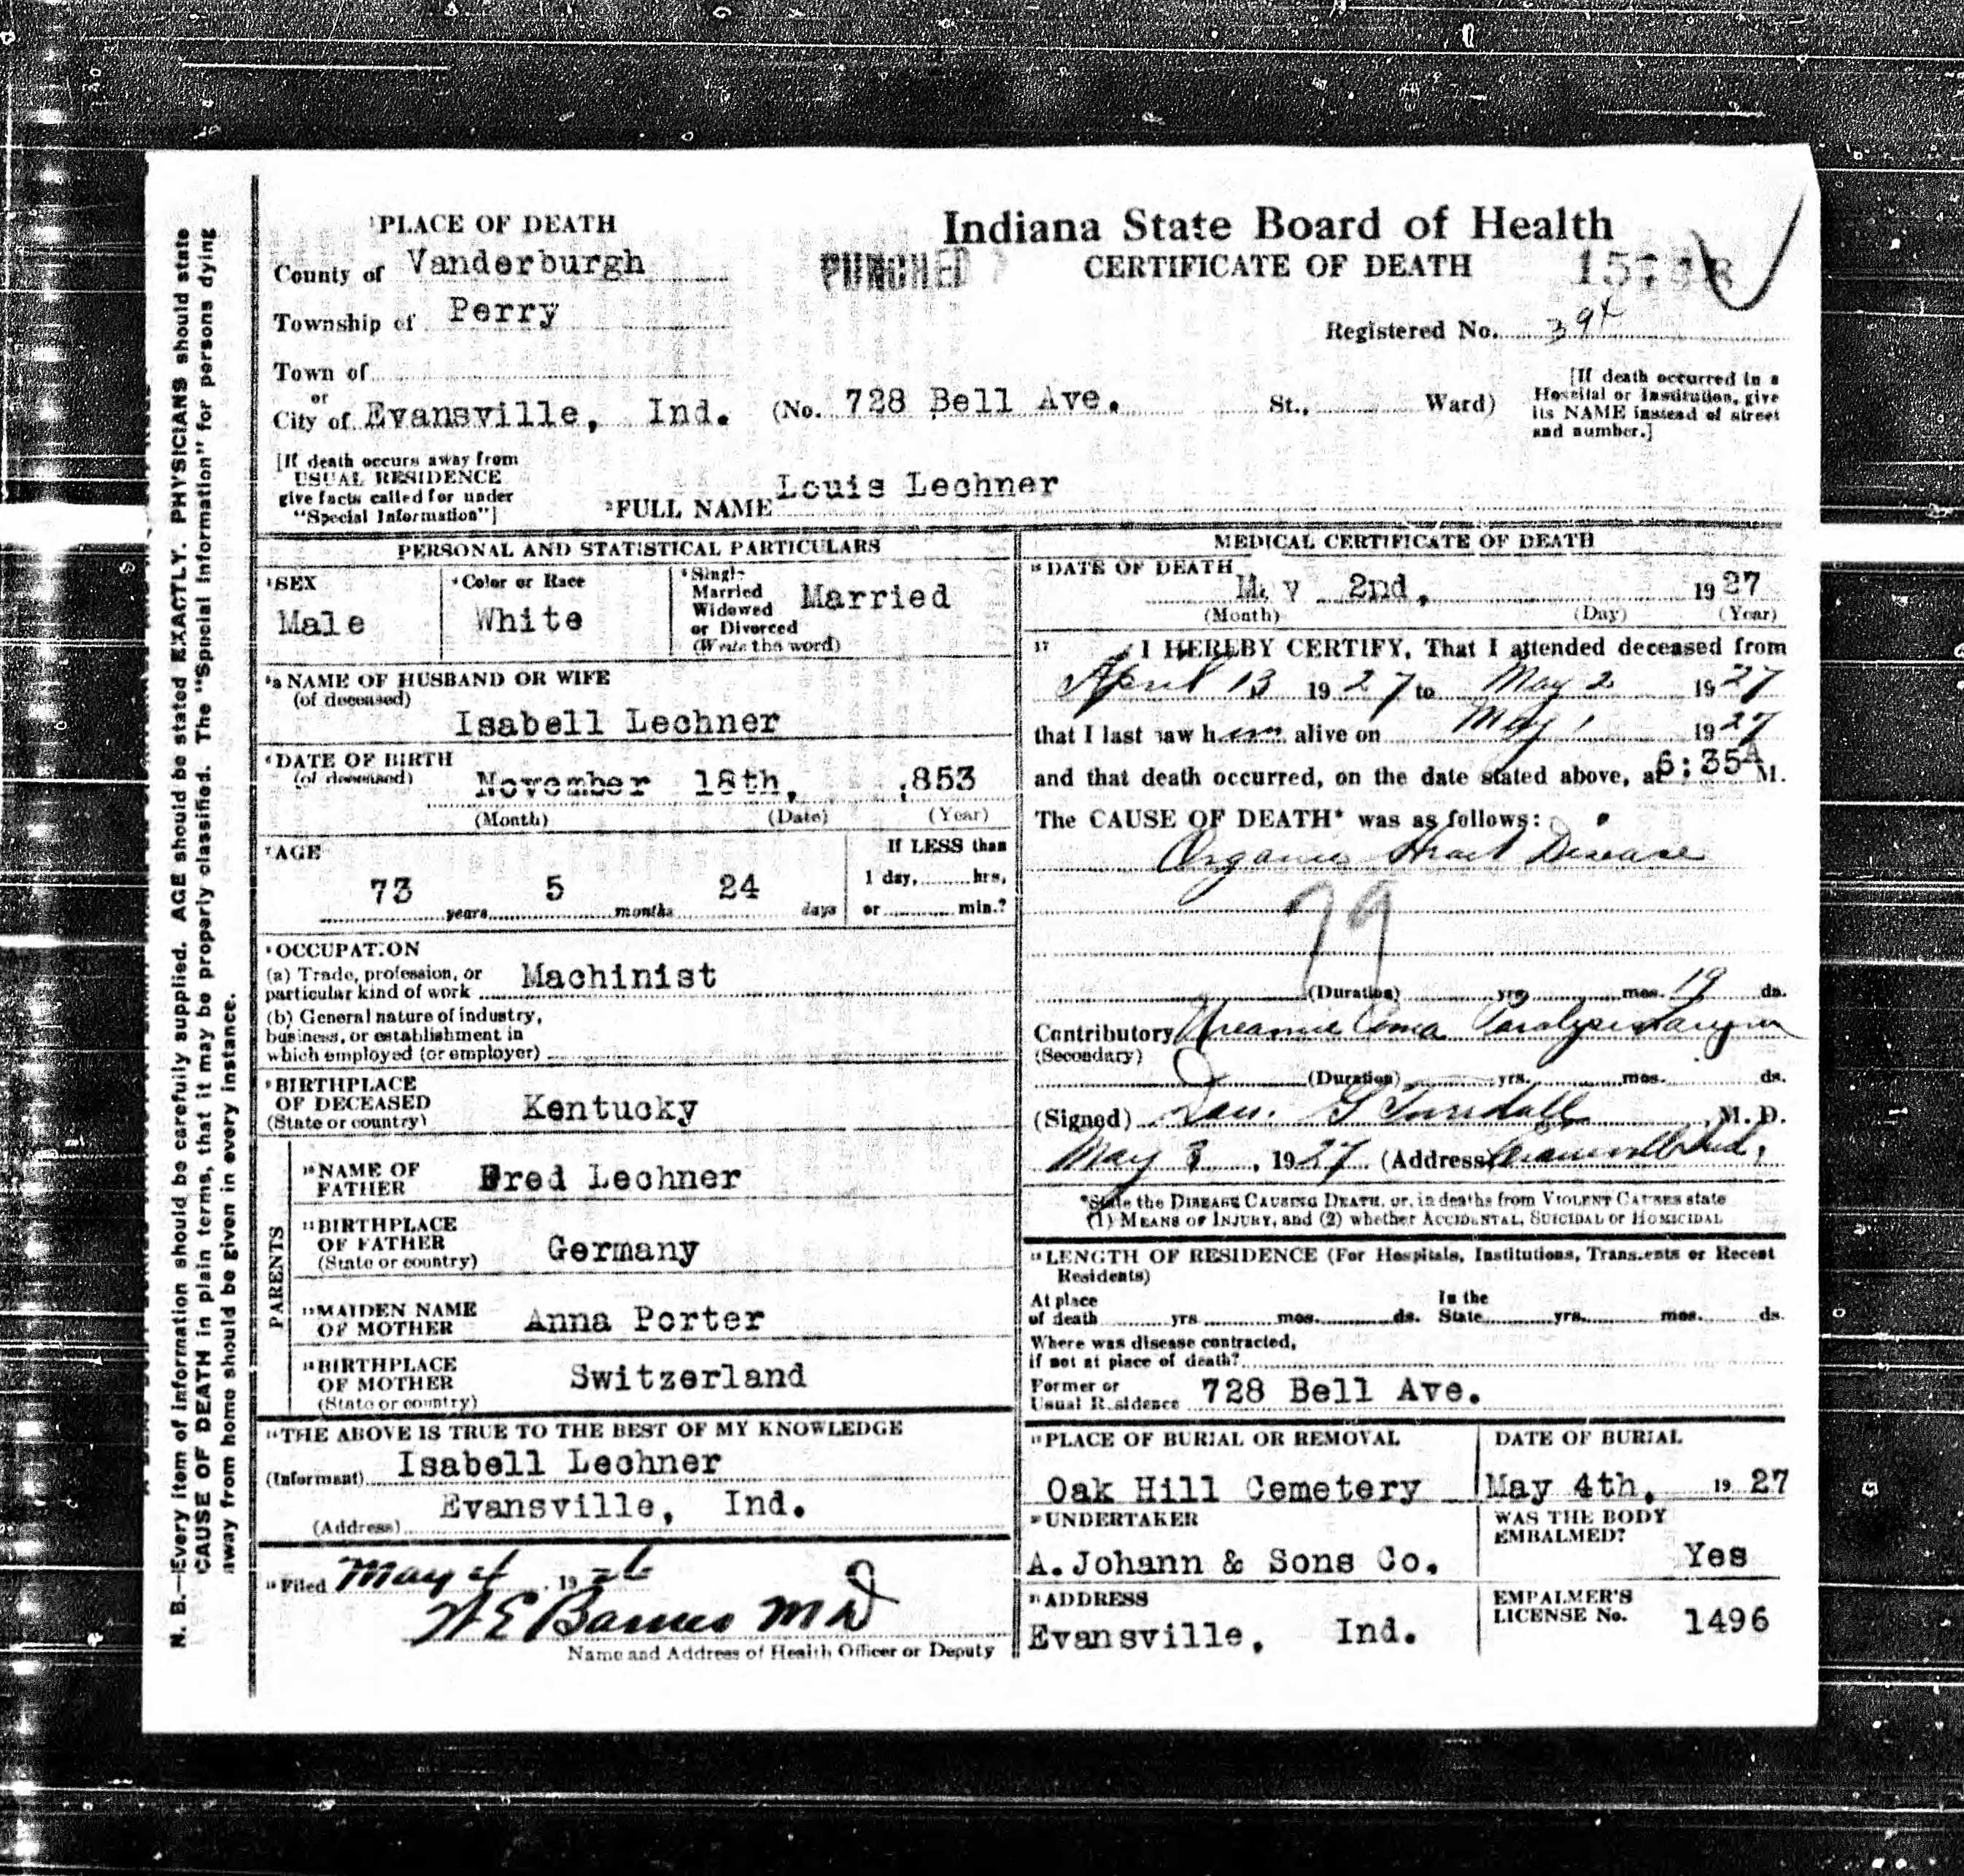 PLACE OF DEATH
County of Vanderburgh
Township of Perry
Town of
or
City of Evansville, Ind.
Indiana State Board of Health
PUNCHED
CERTIFICATE OF DEATH
Registered No. 394
(No. 728 Bell Ave. St., Ward)
[If death occurred in a
Hospital or Institution, give
its NAME instead of street
and number.]
[If death occurs away from
USUAL RESIDENCE
give facts called for under
"Special Information"]
2 FULL NAME Louis Lechner
PERSONAL AND STATISTICAL PARTICULARS
3 SEX
Male
4 Color or Race
White
5 Single
Married
Widowed
or Divorced
(Write the word)
Married
5a NAME OF HUSBAND OR WIFE
(of deceased)
Isabell Lechner
6 DATE OF BIRTH
(of deceased)
November 18th, 1853
(Month) (Date) (Year)
7 AGE
73 years 5 months 24 days
If LESS than
1 day, hrs,
or min.?
8 OCCUPATION
(a) Trade, profession, or
particular kind of work Machinist
(b) General nature of industry,
business, or establishment in
which employed (or employer)
9 BIRTHPLACE
OF DECEASED
(State or country)
Kentucky
PARENTS
10 NAME OF
FATHER
Fred Lechner
11 BIRTHPLACE
OF FATHER
(State or country)
Germany
12 MAIDEN NAME
OF MOTHER
Anna Porter
13 BIRTHPLACE
OF MOTHER
(State or country)
Switzerland
14 THE ABOVE IS TRUE TO THE BEST OF MY KNOWLEDGE
(Informant) Isabell Lechner
(Address) Evansville, Ind.
15 Filed May 4, 1926
W E Barnes M D
Name and Address of Health Officer or Deputy
MEDICAL CERTIFICATE OF DEATH
16 DATE OF DEATH
May 2nd, 1927
(Month) (Day) (Year)
17 I HEREBY CERTIFY, That I attended deceased from
April 13 1927 to May 2 1927
that I last saw him alive on May 1 1927
and that death occurred, on the date stated above, at 6:35 A M.
The CAUSE OF DEATH* was as follows:
Organic Heart Disease
79
(Duration) yrs. mos. 19 ds.
Contributory Uraemic Coma Paralysis Larynx
(Secondary)
(Duration) yrs. mos. ds.
(Signed) , M. D.
May 3, 1927 (Address) Evansville Ind.
*State the DISEASE CAUSING DEATH, or, in deaths from VIOLENT CAUSES state
(1) MEANS OF INJURY, and (2) whether ACCIDENTAL, SUICIDAL or HOMICIDAL
18 LENGTH OF RESIDENCE (For Hospitals, Institutions, Transients or Recent
Residents)
At place
of death yrs. mos. ds.
In the
State yrs. mos. ds.
Where was disease contracted,
if not at place of death?
Former or
Usual Residence 728 Bell Ave.
19 PLACE OF BURIAL OR REMOVAL
Oak Hill Cemetery
DATE OF BURIAL
May 4th, 1927
20 UNDERTAKER
A. Johann & Sons Co.
WAS THE BODY
EMBALMED?
Yes
21 ADDRESS
Evansville, Ind.
EMBALMER'S
LICENSE No. 1496
N. B.—Every item of information should be carefully supplied. AGE should be stated EXACTLY. PHYSICIANS should state
CAUSE OF DEATH in plain terms, that it may be properly classified. The "Special Information" for persons dying
away from home should be given in every instance.